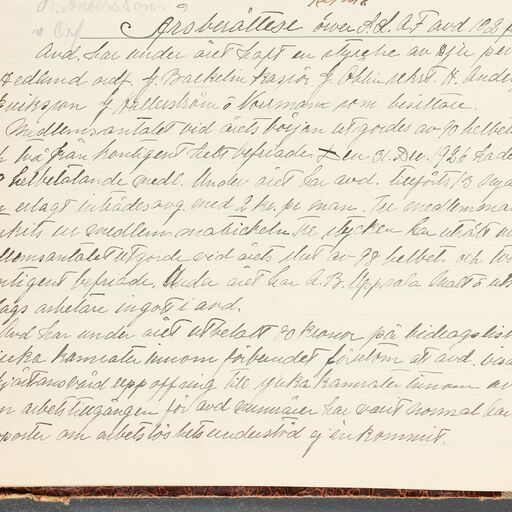 H. Andersson
v Ordf
Årsberättelse över S.L.A.F avd 102
Avd. har under året haft en styrelse av sju per
Hedlund ordf. J. Backelin kassör J. Ohlin sekrt. H. Ander
Eriksson J. Hellerström o Norman som besittare.
Medlemsantalet vid årets början utgordes av 90 helbet
två från kontigent helt befriade. Den 31 Dec. 1926 hade
helbetalande medl. Under året har avd. tillförts 13 nya
erlagt inträdesavg. med 2 kr. pr man. Tre medlemmar
en medlem Tre stycken har utått
lemsantalet utgorde vid årets slut av 98 helbet. och två
ntigent befriade. Under året har A.B. Uppsala
lags arbetare ingott i avd.
Avd har under året utbetalt 80 kronor på bidragslist
sjuka kamrater innom förbundet förutom att avd.
uppoffring till sjuka kamrater innom
arbetstillgången för avd medlemmar har varit normal har
om arbetslöshetsunderstöd ej inkommit.